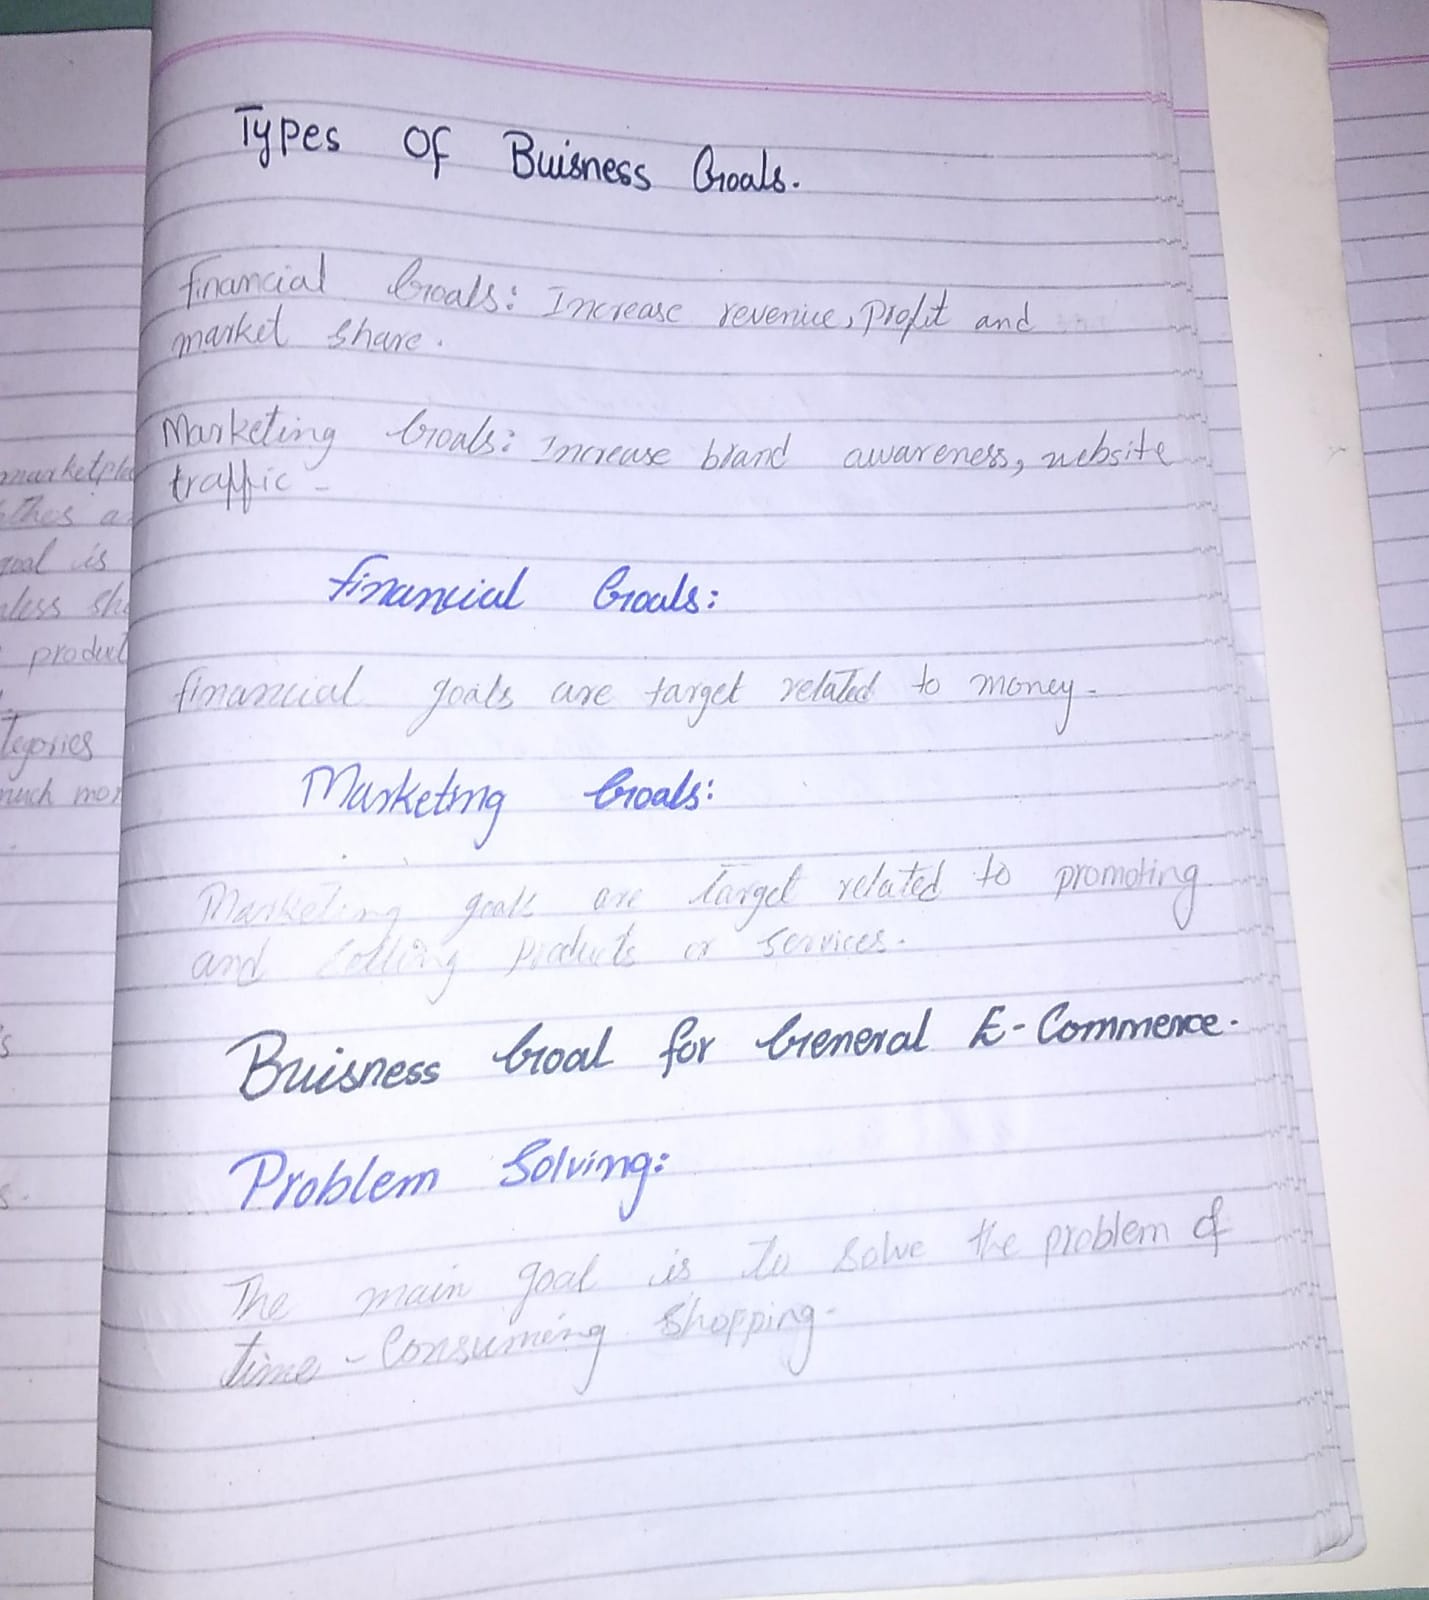 Types Of Buisness Goals.
Financial Goals: Increase revenue, Profit and
market share.
Marketing Goals: Increase brand awareness, website
traffic -
Financial Goals:
financial goals are target related to money.
Marketing Goals:
Marketing goals are target related to promoting
and Selling Products or Services.
Buisness Goal for General E-Commerce.
Problem Solving:
The main goal is to solve the problem of
time-Consuming Shopping.
goal is
product